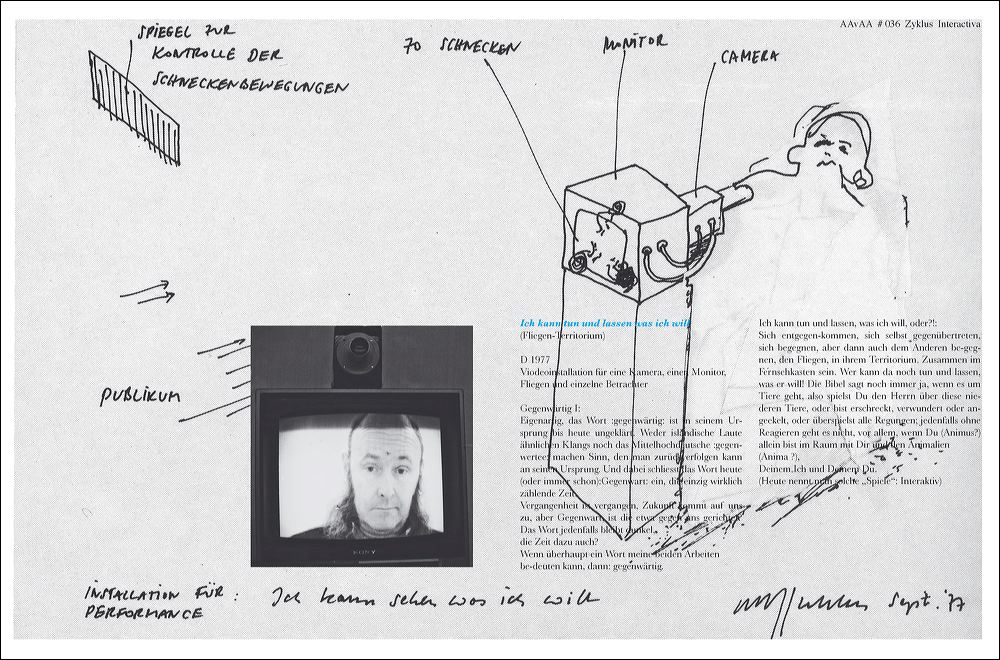 AAvAA # 036 Zyklus Interactiva
SPIEGEL ZUR
KONTROLLE DER
SCHNECKENBEWEGUNGEN
70 SCHNECKEN
MONITOR
CAMERA
PUBLIKUM
SONY
Ich kann tun und lassen was ich will
(Fliegen-Territorium)
D 1977
Viodeoinstallation für eine Kamera, einen Monitor,
Fliegen und einzelne Betrachter
Gegenwärtig I:
Eigenartig, das Wort :gegenwärtig: ist in seinem Ur-
sprung bis heute ungeklärt. Weder isländische Laute
ähnlichen Klangs noch das Mittelhochdeutsche :gegen-
wertec: machen Sinn, den man zurückverfolgen kann
an seinen Ursprung. Und dabei schliesst das Wort heute
(oder immer schon):Gegenwart: ein, die einzig wirklich
zählende Zeit.
Vergangenheit ist vergangen, Zukunft kommt auf uns
zu, aber Gegenwart ist die etwa gegen uns gerichtet.
Das Wort jedenfalls bleibt dunkel,
die Zeit dazu auch?
Wenn überhaupt ein Wort meine beiden Arbeiten
be-deuten kann, dann: gegenwärtig.
Ich kann tun und lassen, was ich will, oder?!:
Sich entgegen-kommen, sich selbst gegenübertreten,
sich begegnen, aber dann auch dem Anderen be-geg-
nen, den Fliegen, in ihrem Territorium. Zusammen im
Fernsehkasten sein. Wer kann da noch tun und lassen,
was er will! Die Bibel sagt noch immer ja, wenn es um
Tiere geht, also spielst Du den Herrn über diese nie-
deren Tiere, oder bist erschreckt, verwundert oder an-
geekelt, oder überspielst alle Regungen; jedenfalls ohne
Reagieren geht es nicht, vor allem, wenn Du (Animus?)
allein bist im Raum mit Dir und den Animalien
(Anima ?),
Deinem Ich und Deinem Du.
(Heute nennt man solche „Spiele“: Interaktiv)
INSTALLATION FÜR :
PERFORMANCE
Ich kann sehen was ich will
Sept. '77